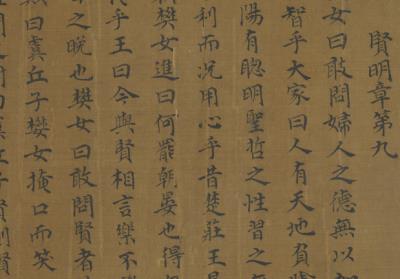 賢明章第九
女曰敢問婦人之德無以加
智乎大家曰人有天地負
陽有聰明聖哲之性習之
利而況用心乎昔楚莊王
樊女進曰何罷朝晏也得
乎王曰今與賢相言樂不
之晚也樊女曰敢問賢者
曰虞丘子樊女掩口而笑
丘子賢則賢